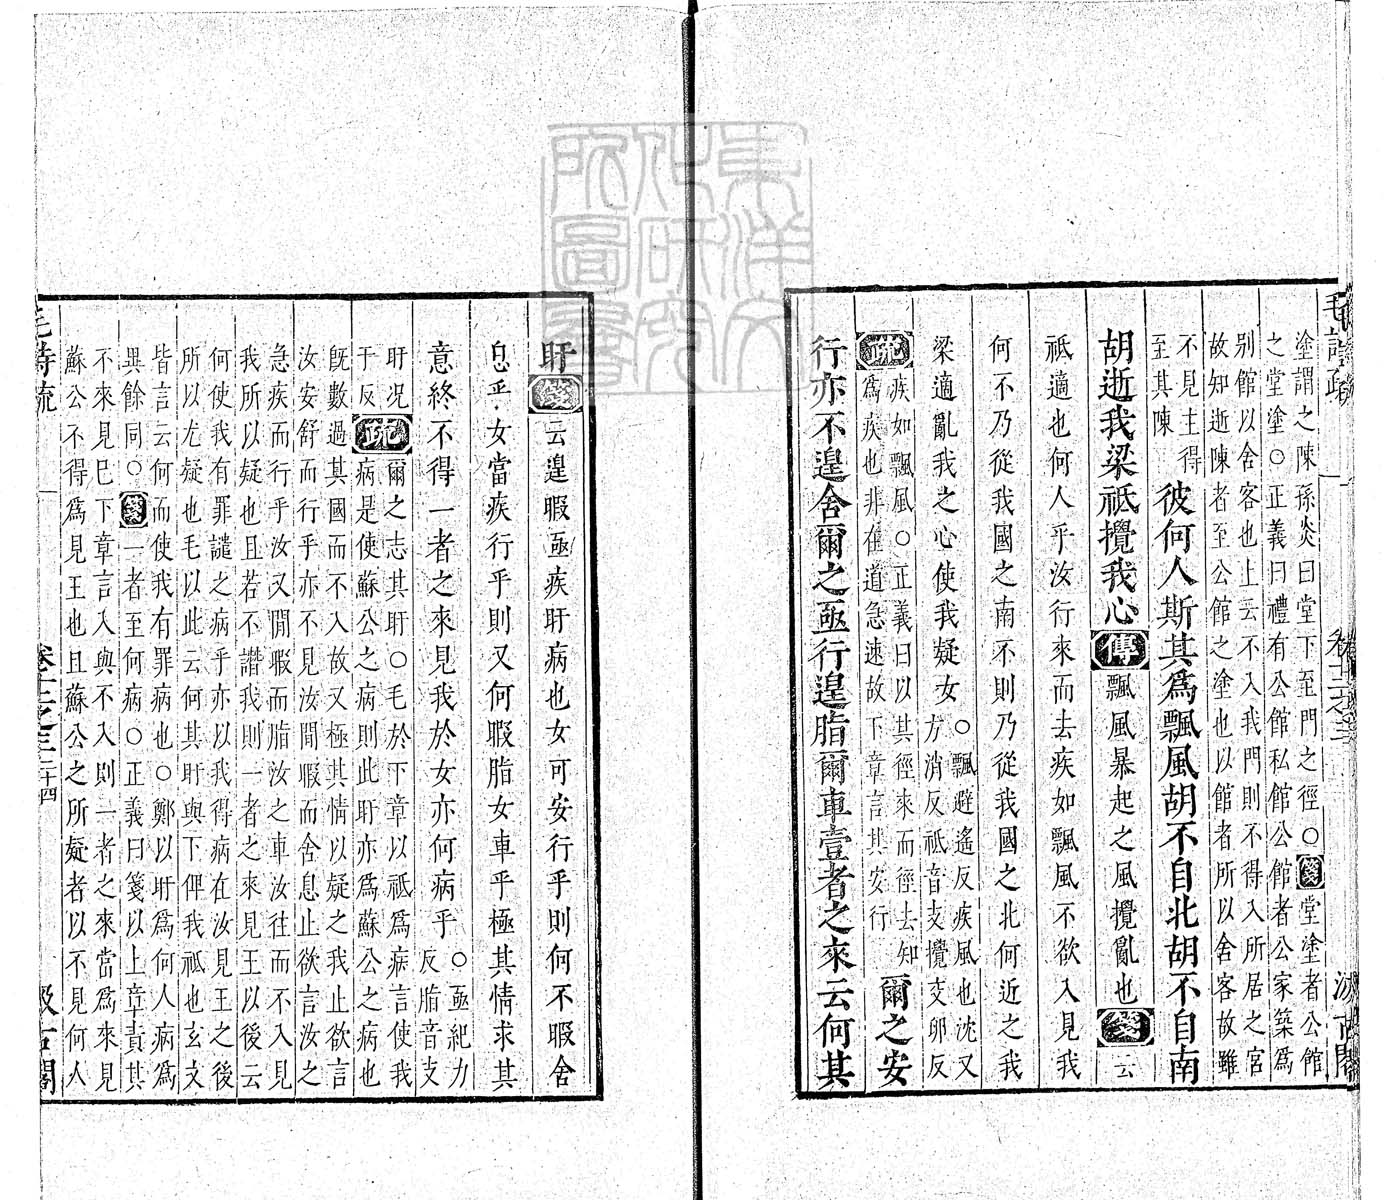 塗謂之陳孫炎曰堂下至門之徑○箋堂塗者公館
之堂塗○正義曰禮有公館私館公館者公家築為
別館以舍客也上云不入我門則不得入所居之宮
故知逝陳者至公館之塗也以館者所以舍客故雖
不見主得
至其陳
彼何人斯其爲飄風胡不自北胡不自南
胡逝我梁祇攪我心傳飄風暴起之風攪亂也箋云
祇適也何人乎汝行來而去疾如飄風不欲入見我
何不乃從我國之南不則乃從我國之北何近之我
梁適亂我之心使我疑女○飄避遙反疾風也沈又
方消反祇音支攪交卯反
疏疾如飄風○正義曰以其徑來而徑去知
爲疾也非在道急速故下章言其安行
爾之安
行亦不遑舍爾之亟行遑脂爾車壹者之來云何其
盱箋云遑暇亟疾盱病也女可安行乎則何不暇舍
息乎女當疾行乎則又何暇脂女車乎極其情求其
意終不得一者之來見我於女亦何病乎○亟紀力
反脂音支
盱况
于反
疏爾之志其盱○毛於下章以祇爲病言使我
病是使蘇公之病則此盱亦爲蘇公之病也
既數過其國而不入故又極其情以疑之我止欲言
汝安舒而行乎亦不見汝閒暇而舍息止欲言汝之
急疾而行乎汝又閒暇而脂汝之車汝往而不入見
我所以疑也且若不譖我則一者之來見王以後云
何使我有罪譴之病乎亦以我得病在汝見王之後
所以尤疑也毛以此云何其盱與下俾我祇也玄文
皆言云何而使我有罪病也○鄭以盱爲何人病爲
異餘同○箋一者至何病○正義曰箋以上章責其
不來見巳下章言入與不入則一者之來當爲來見
蘇公不得爲見王也且蘇公之所疑者以不見何人
毛詩疏
卷十二之三
二十四
汲古閣